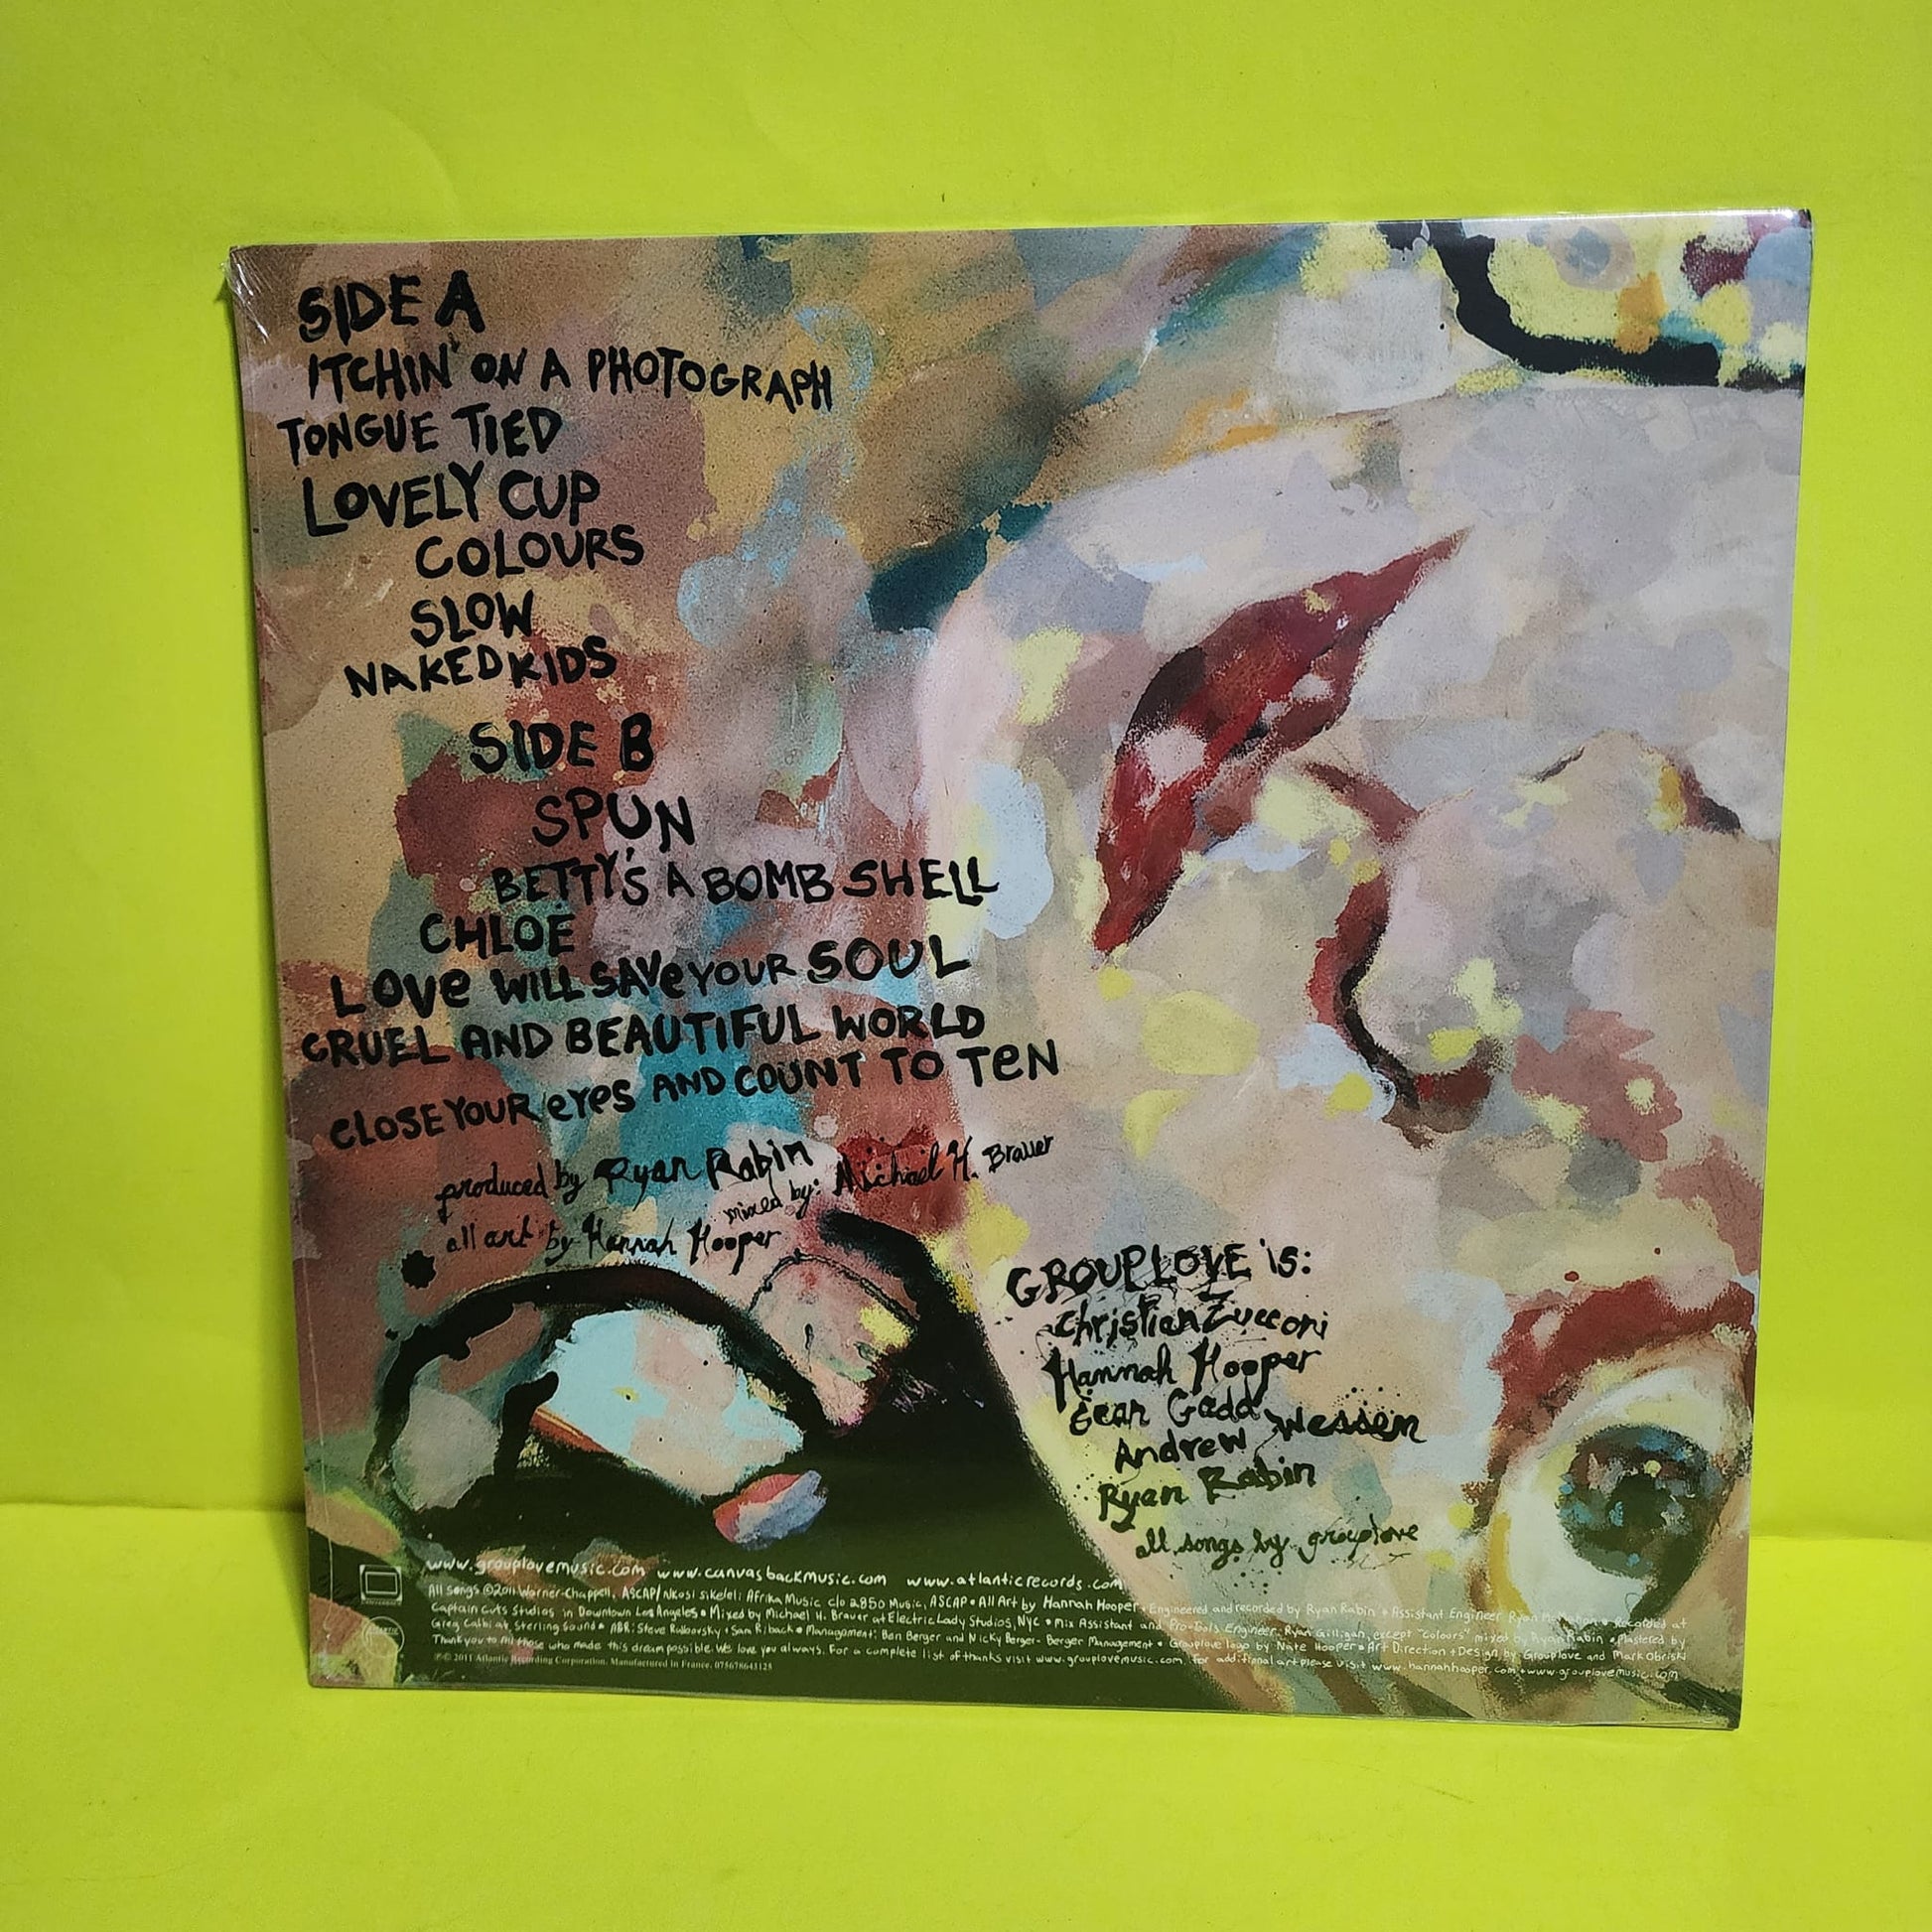 SIDE A
ITCHIN' ON A PHOTOGRAPH
TONGUE TIED
LOVELY CUP
COLOURS
SLOW
NAKED KIDS
SIDE B
SPUN
BETTY'S A BOMB SHELL
CHLOE
LOVe WILL SAVe YOUR SOUL
CRUEL AND BEAUTIFUL WORLD
CLOSE YOUR eYes AND COUNT TO TeN
produced by Ryan Rabin
mixed by: Michael H. Brauer
all art by Hannah Hooper
GROUPLOVE is:
Christian Zucconi
Hannah Hooper
Sean Gadd
Andrew Wessen
Ryan Rabin
all songs by grouplove
www.grouplovemusic.com www.canvasbackmusic.com www.atlanticrecords.com
All songs ©2011 Warner-Chappell, ASCAP/ Nkosi Sikeleli Afrika Music c/o 2850 Music, ASCAP • All Art by Hannah Hooper • Engineered and recorded by Ryan Rabin • Assistant Engineer Ryan • Recorded at
Captain Cuts Studios in Downtown Los Angeles • Mixed by Michael H. Brauer at Electric Lady Studios, NYC • Mix Assistant and Pro-Tools Engineer: Ryan Gilligan, except "Colours" mixed by Ryan Rabin • Mastered by
Greg Calbi at Sterling Sound • A&R: Steve • Sam Riback • Management: Ben Berger and Nicky Berger - Berger Management • Grouplove logo by Nate Hooper • Art Direction + Design by Grouplove and Mark Obriski
Thank you to all those who made this dream possible. We love you always. For a complete list of thanks visit www.grouplovemusic.com. For additional art please visit www.hannahhooper.com + www.grouplovemusic.com
℗© 2011 Atlantic Recording Corporation. Manufactured in France. 075678643128